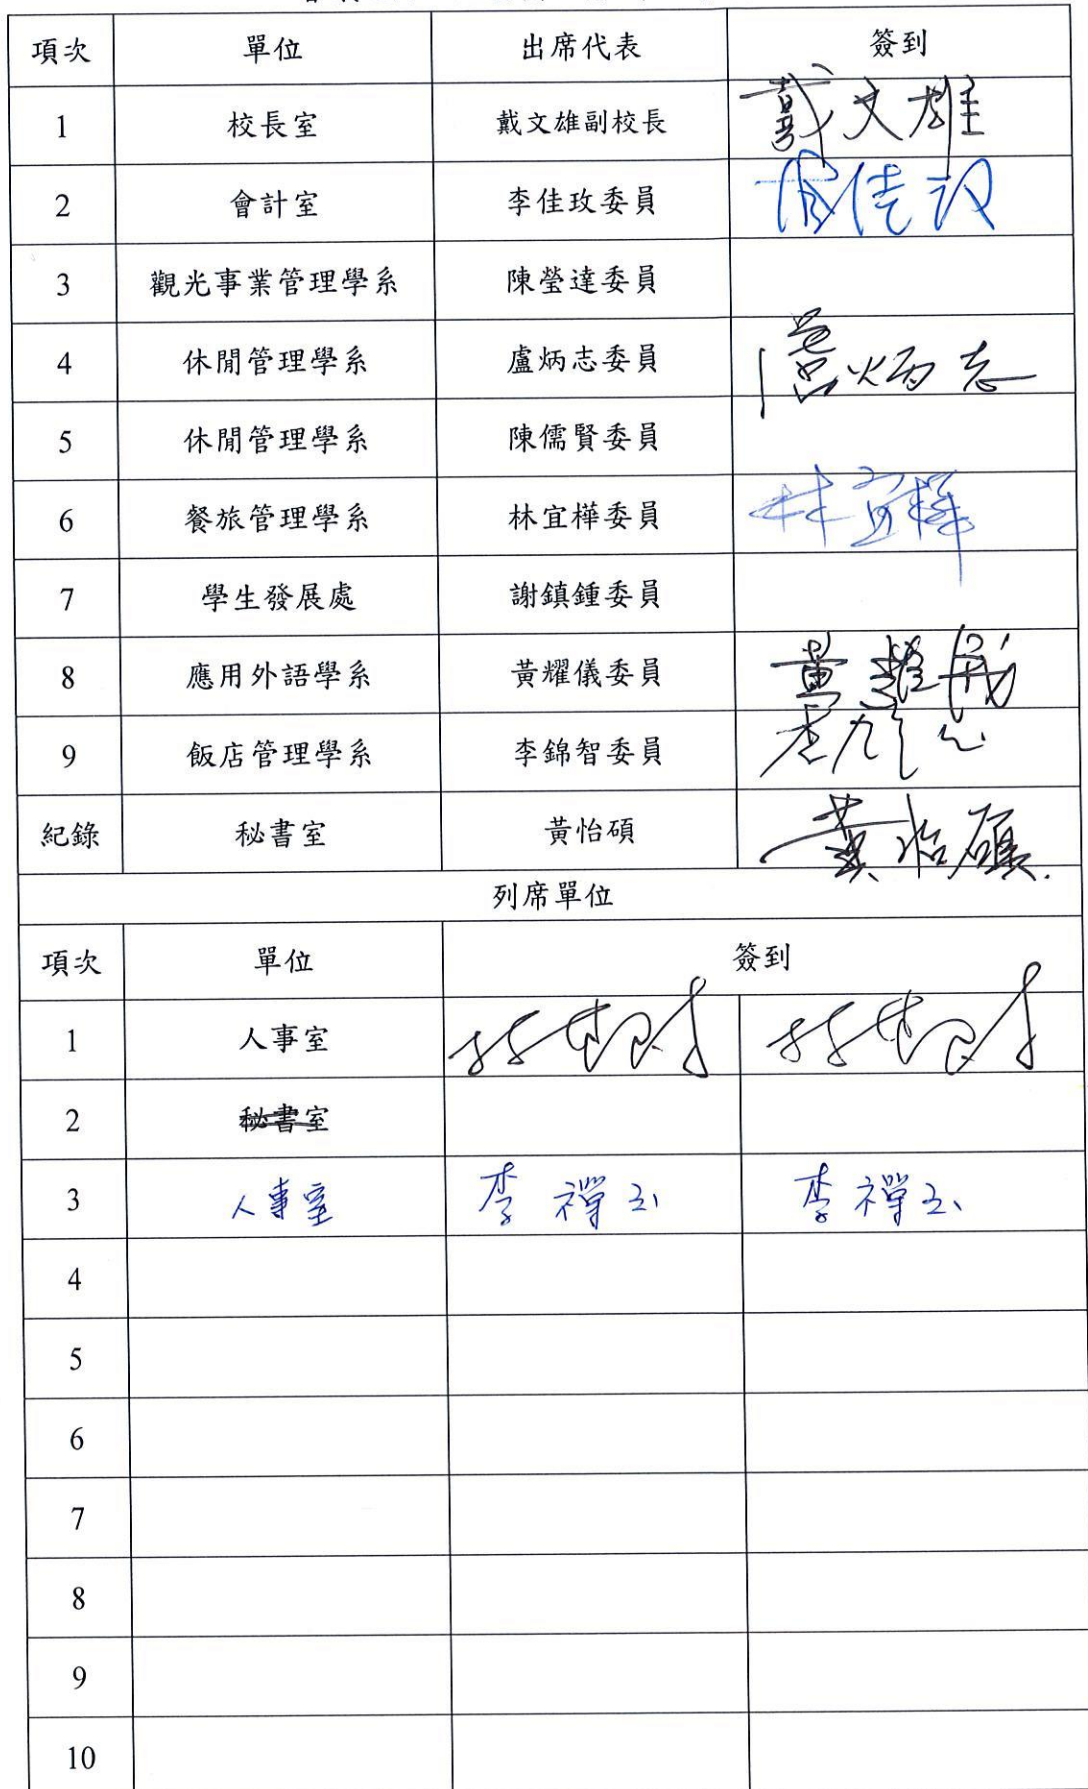 項次 單位 出席代表 簽到
1 校長室 戴文雄副校長 戴文雄
2 會計室 李佳玫委員
3 觀光事業管理學系 陳瑩達委員
4 休閒管理學系 盧炳志委員 盧炳志
5 休閒管理學系 陳儒賢委員
6 餐旅管理學系 林宜樺委員 林宜樺
7 學生發展處 謝鎮鍾委員
8 應用外語學系 黃耀儀委員 黃耀儀
9 飯店管理學系 李錦智委員
紀錄 秘書室 黃怡碩 黃怡碩
列席單位
項次 單位 簽到
1 人事室
2 秘書室
3 人事室 李禪玉 李禪玉
4
5
6
7
8
9
10